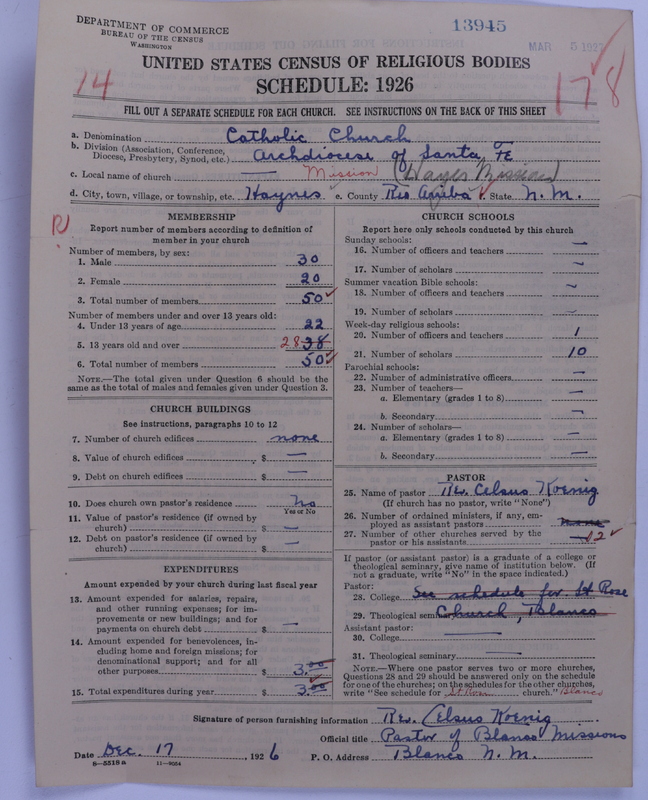 DEPARTMENT OF COMMERCE
BUREAU OF THE CENSUS
WASHINGTON
13945
MAR 5 1927
UNITED STATES CENSUS OF RELIGIOUS BODIES
SCHEDULE: 1926
14
178
FILL OUT A SEPARATE SCHEDULE FOR EACH CHURCH. SEE INSTRUCTIONS ON THE BACK OF THIS SHEET
a. Denomination Catholic Church
b. Division (Association, Conference, Diocese, Presbytery, Synod, etc.) Archdiocese of Santa Fe
c. Local name of church — Mission (Hayes Mission)
d. City, town, village, or township, etc. Haynes e. County Rio Arriba f. State N. M.
MEMBERSHIP
Report number of members according to definition of
member in your church
Number of members, by sex:
1. Male 30
2. Female 20
3. Total number of members 50
Number of members under and over 13 years old:
4. Under 13 years of age 22
5. 13 years old and over 28 38
6. Total number of members 50
NOTE.—The total given under Question 6 should be the
same as the total of males and females given under Question 3.
CHURCH BUILDINGS
See instructions, paragraphs 10 to 12
7. Number of church edifices none
8. Value of church edifices $ —
9. Debt on church edifices $ —
10. Does church own pastor's residence No
Yes or No
11. Value of pastor's residence (if owned by
church) $ —
12. Debt on pastor's residence (if owned by
church) $ —
EXPENDITURES
Amount expended by your church during last fiscal year
13. Amount expended for salaries, repairs,
and other running expenses; for im-
provements or new buildings; and for
payments on church debt $ —
14. Amount expended for benevolences, in-
cluding home and foreign missions; for
denominational support; and for all
other purposes $ 3.00
15. Total expenditures during year $ 3.00
CHURCH SCHOOLS
Report here only schools conducted by this church
Sunday schools:
16. Number of officers and teachers —
17. Number of scholars —
Summer vacation Bible schools:
18. Number of officers and teachers —
19. Number of scholars —
Week-day religious schools:
20. Number of officers and teachers 1
21. Number of scholars 10
Parochial schools:
22. Number of administrative officers —
23. Number of teachers—
a. Elementary (grades 1 to 8) —
b. Secondary —
24. Number of scholars—
a. Elementary (grades 1 to 8) —
b. Secondary —
PASTOR
25. Name of pastor Rev. Celsus Koenig
(If church has no pastor, write "None")
26. Number of ordained ministers, if any, em-
ployed as assistant pastors none
27. Number of other churches served by the
pastor or his assistants 12
If pastor (or assistant pastor) is a graduate of a college or
theological seminary, give name of institution below. (If
not a graduate, write "No" in the space indicated.)
Pastor:
28. College See schedule for St Rose
29. Theological seminary Church, Blanco
Assistant pastor:
30. College —
31. Theological seminary —
NOTE.—Where one pastor serves two or more churches,
Questions 28 and 29 should be answered only on the schedule
for one of the churches; on the schedules for the other churches,
write "See schedule for St Rose church." Blanco
Signature of person furnishing information Rev. Celsus Koenig
Official title Pastor of Blanco Missions
Date Dec. 17, 1926 P. O. Address Blanco N. M.
8—5518a 11—9054